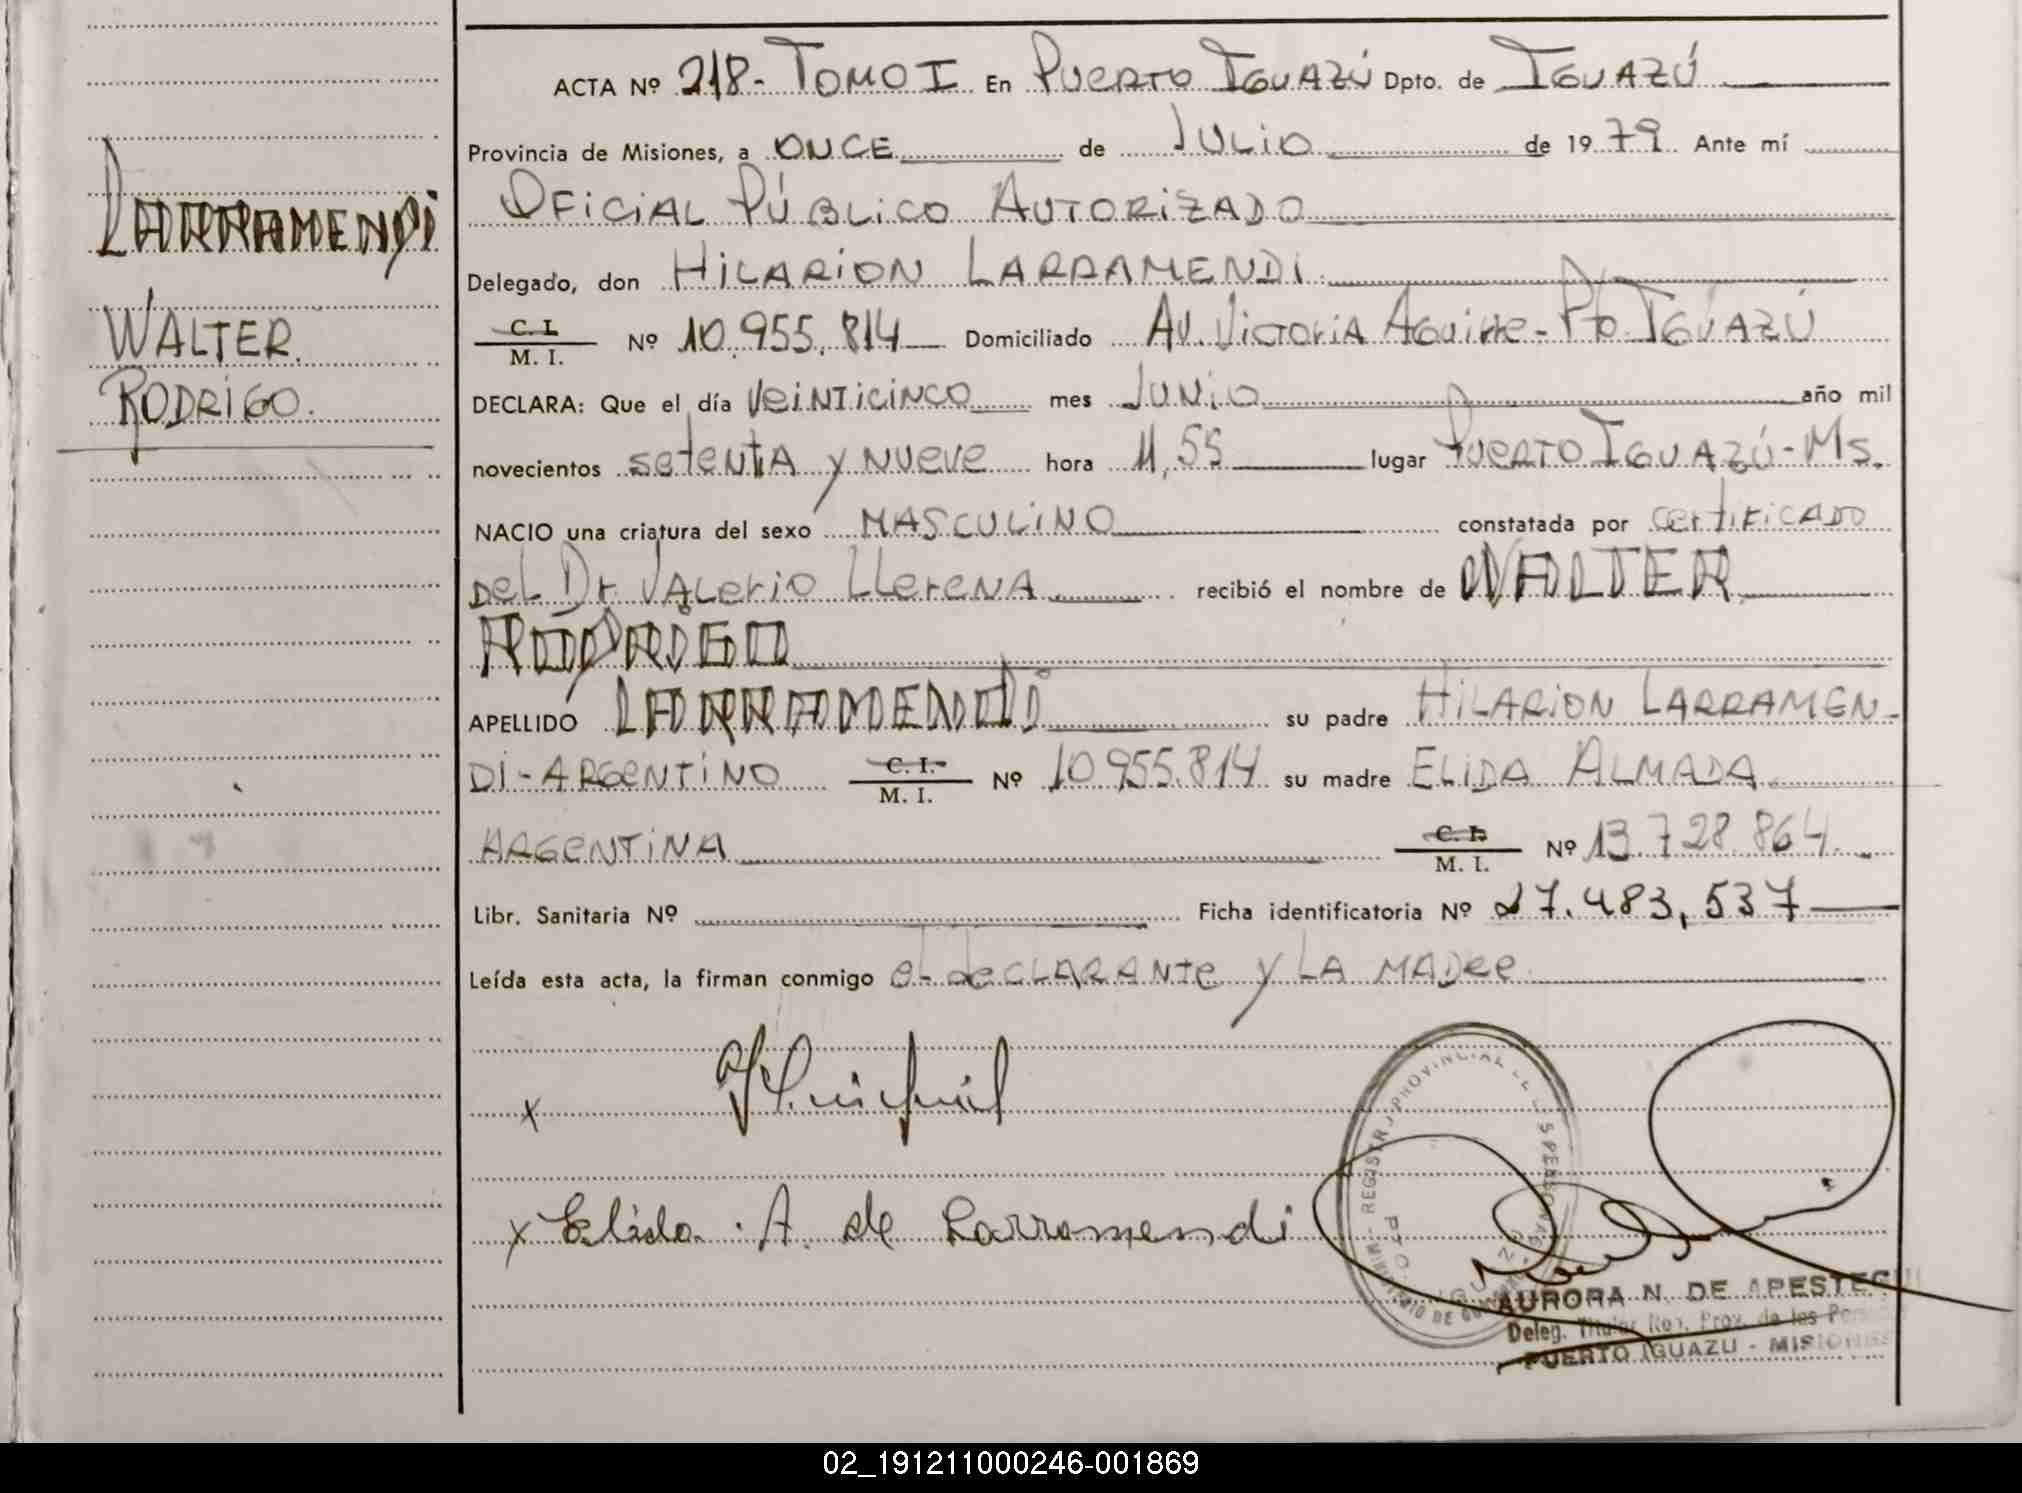 ACTA Nº 218- TOMO I En PUERTO IGUAZÚ Dpto. de IGUAZÚ
Provincia de Misiones, a ONCE de JULIO de 1979. Ante mí
OFICIAL PÚBLICO AUTORIZADO
Delegado, don HILARION LARRAMENDI.
C. I. M. I. Nº 10.955.814 Domiciliado AV. VICTORIA AGUIRRE - Pto. IGUAZÚ
DECLARA: Que el día VEINTICINCO mes JUNIO año mil
novecientos setenta y NUEVE hora 11,55 lugar PUERTO IGUAZÚ - Ms.
NACIO una criatura del sexo MASCULINO constatada por CERTIFICADO
DEL Dr. VALERIO LLERENA recibió el nombre de WALTER
RODRIGO
APELLIDO LARRAMENDI su padre HILARION LARRAMEN-
DI - ARGENTINO C. I. M. I. Nº 10.955.814 su madre ELIDA ALMADA
ARGENTINA C. I. M. I. Nº 13.728.864.
Libr. Sanitaria Nº Ficha identificatoria Nº 27.483,537
Leída esta acta, la firman conmigo el declarante y LA MADRE
LARRAMENDI
WALTER
RODRIGO.
x
x Elida A. de Larramendi
REGISTRO PROVINCIAL DE LAS PERSONAS
AURORA N. DE APESTEGUI
Deleg. Titular Reg. Prov. de las Personas
PUERTO IGUAZU - MISIONES
02_191211000246-001869